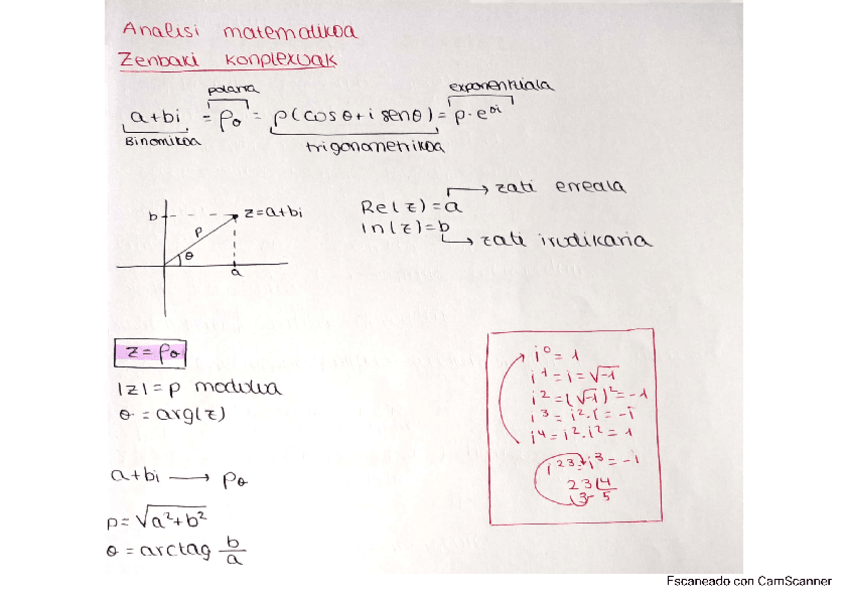 Analisi matematikoa
Zenbaki konplexuak
polarra
exponentziala
a+bi = ρθ = ρ(cosθ+i senθ) = ρ·e^θi
Binomikoa
trigonometrikoa
b
z=a+bi
ρ
θ
a
zati erreala
Re(z)=a
In(z)=b
zati irudikaria
z=ρθ
|z|=ρ modulua
θ=arg(z)
a+bi → ρθ
ρ=√a²+b²
θ=arctag b/a
i⁰=1
i¹=i=√-1
i²=(√-1)²=-1
i³=i²·i=-i
i⁴=i²·i²=1
i²³=i³=-i
23 4
3 5
Escaneado con CamScanner